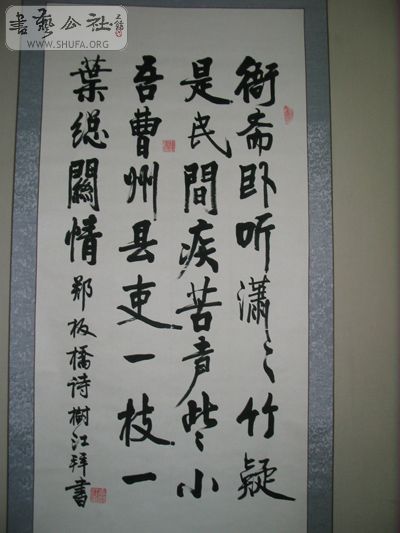 書藝公社
WWW.SHUFA.ORG
衙斋卧听瀟々竹疑
是民間疾苦声些々小
吾曹州县吏一枝一
葉總關情 郑板橋诗樹江拜書